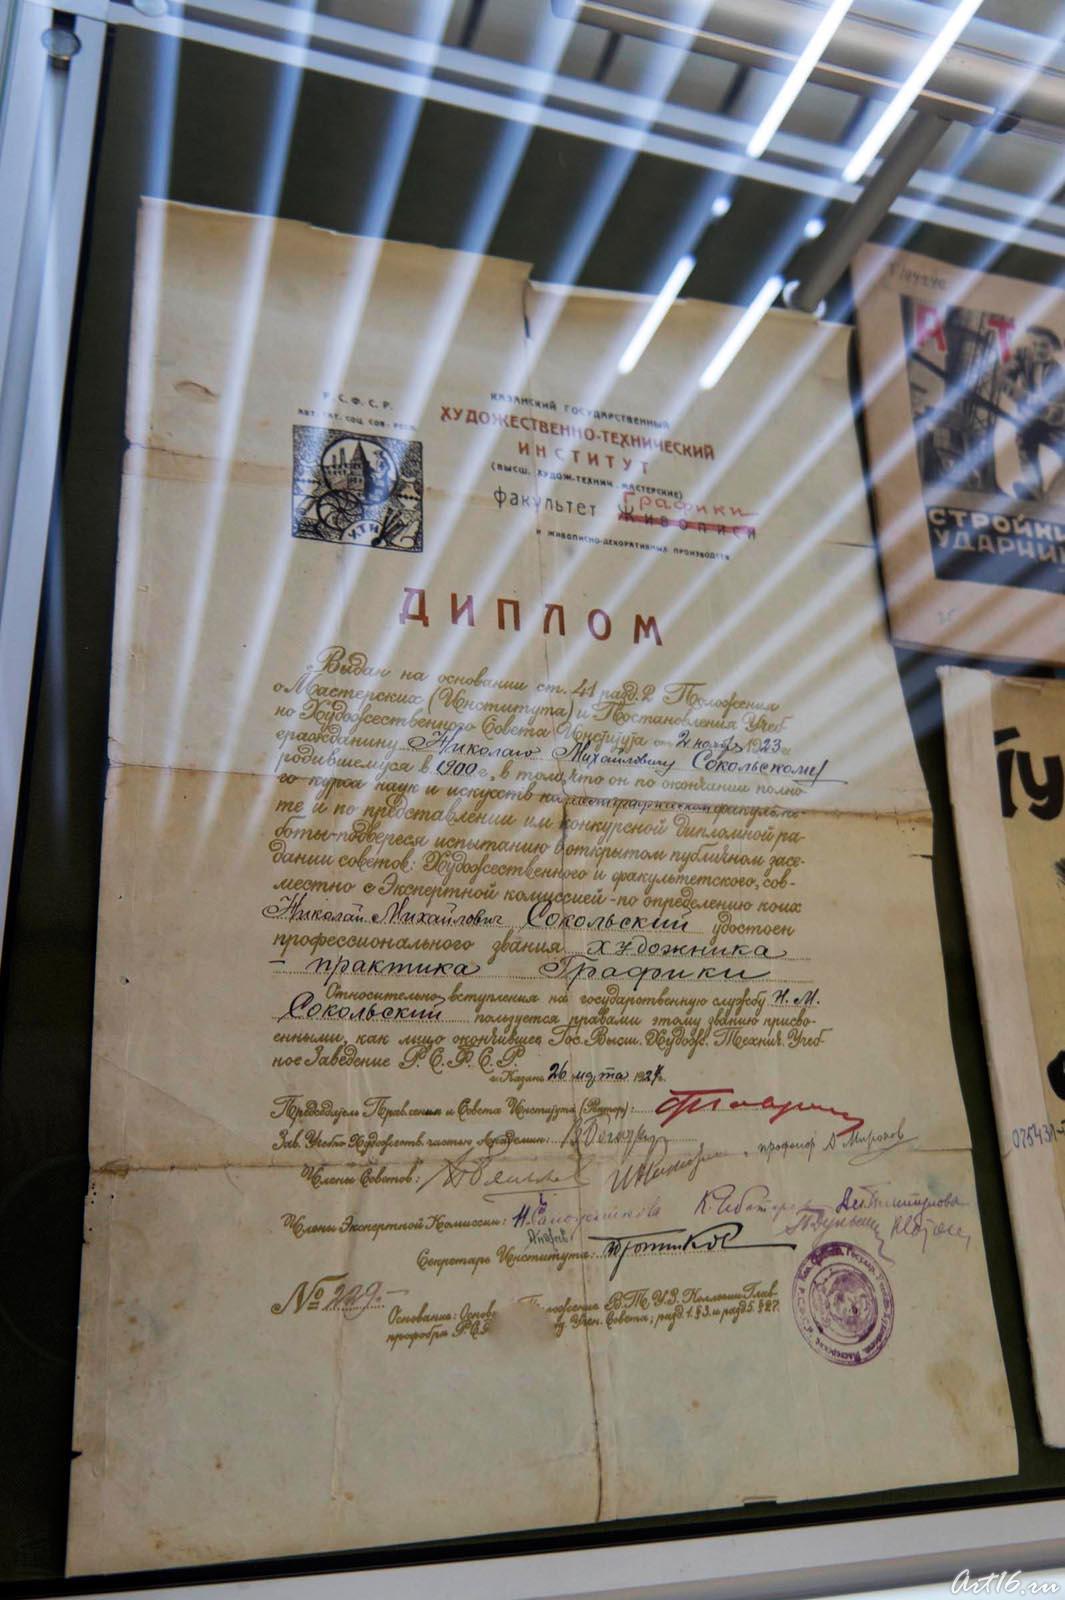 Р.С.Ф.С.Р.
АВТ. ТАТ. СОЦ. СОВ. РЕСП.
КХТИ
КАЗАНСКИЙ ГОСУДАРСТВЕННЫЙ
ХУДОЖЕСТВЕННО-ТЕХНИЧЕСКИЙ
ИНСТИТУТ
(ВЫСШ. ХУДОЖ-ТЕХНИЧ. МАСТЕРСКИЕ)
Графики
факультет ЖИВОПИСИ
И ЖИВОПИСНО-ДЕКОРАТИВНЫХ ПРОИЗВОДСТВ
ДИПЛОМ
Выдан на основании ст. 41 разд. 2 Положения
о Мастерских (Института) и Постановления Учеб-
но Художественного Совета Института от 2 ноября 1923 г
гражданину Николаю Михайловичу Сокольскому
родившемуся в 1900 г., в том, что он по окончании полно-
го курса наук и искусств на факульте-
те и по представлении им конкурсной дипломной ра-
боты-подвергся испытанию в открытом публичном засе-
дании советов: Художественного и факультетского, сов-
местно с Экспертной комиссией-по определению коих
Николай Михайлович Сокольский удостоен
профессионального звания художника
- практика Графики
Относительно вступления на государственную службу Н. М.
Сокольский пользуется правами этому званию присво-
енными, как лицо окончившее Гос. Высш. Худож. Технич. Учеб-
ное Заведение Р.С.Ф.С.Р.
г. Казань 26 марта 1924 г.
Председатель Правления и Совета Института (Ректор):
Зав. Учебно Художеств. частью Академик:
Члены Советов: профессор Д Миропов
Члены Экспертной Комиссии: Н. Сапожникова
Секретарь Института:
№ 229.-
Основание: Основ Положение В.Т.У.З. Коллегии Глав-
профобра Р.С.Ф Учен. Совета; разд. 1. §3. и разд 5. §27.
А Т
СТРОЙКИ
УДАРНИК
Art16.ru